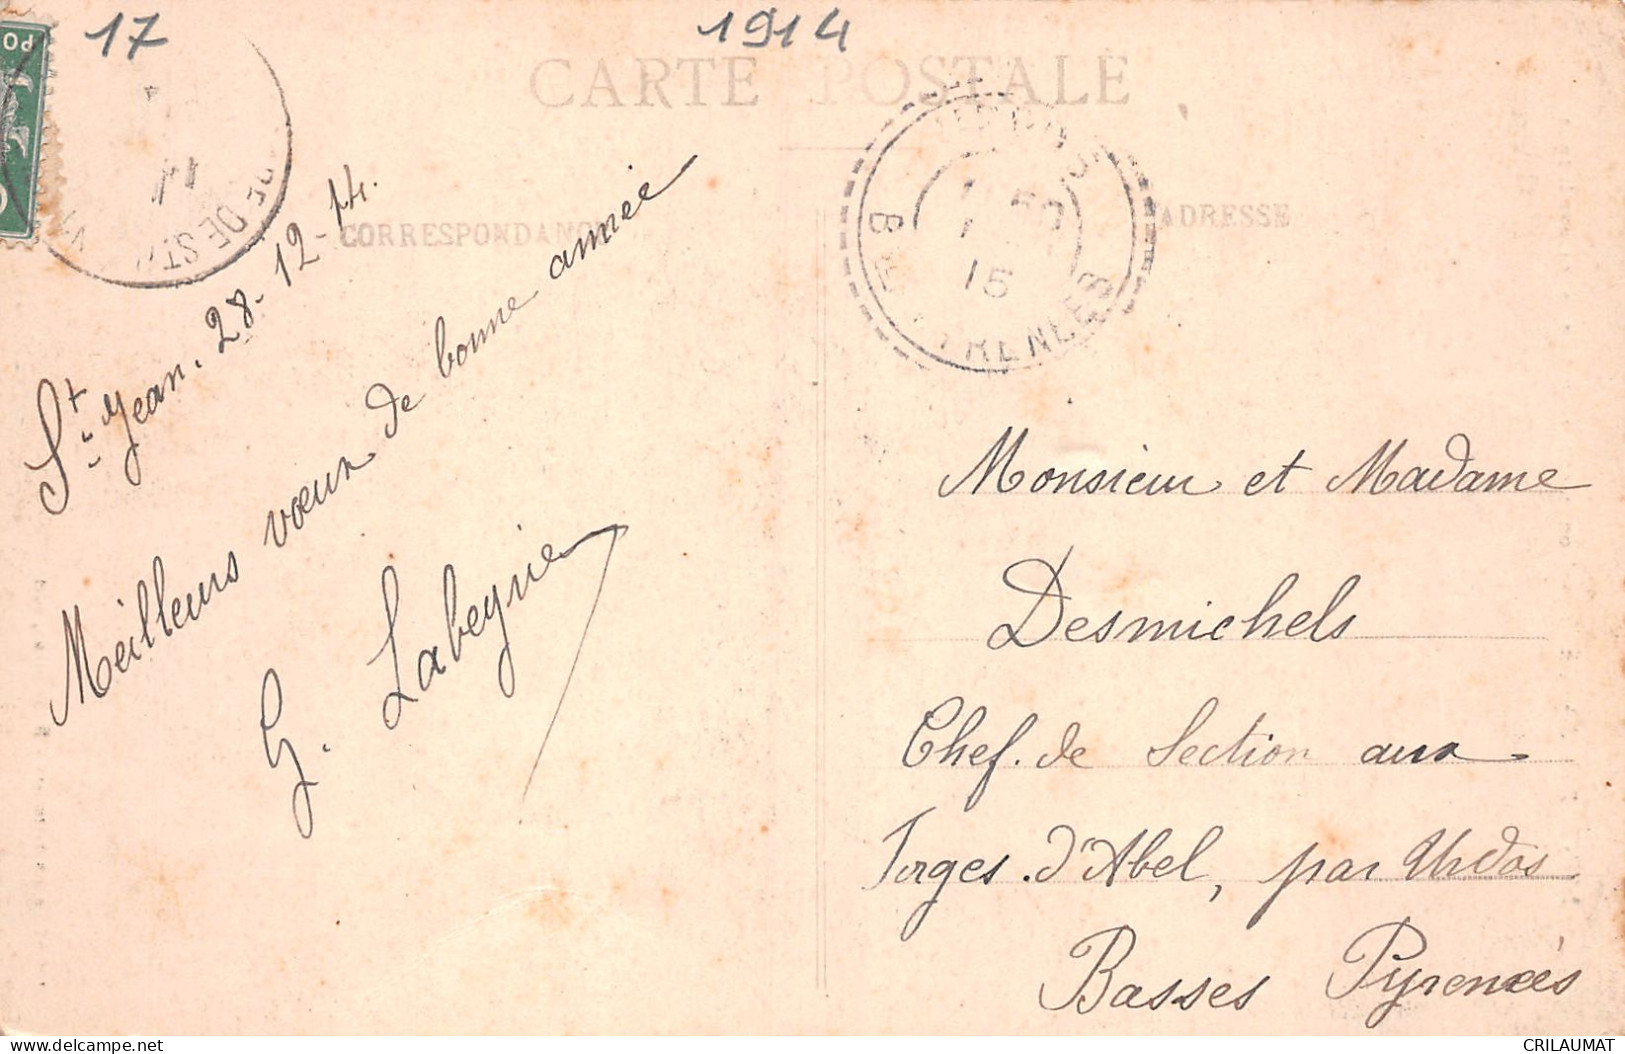 17
1914
PO
CARTE POSTALE
CORRESPONDANCE
ADRESSE
DE ST
14
B
15
PYRENEES
St Jean. 28-12-14.
Meilleurs vœux de bonne année
G. Labeyrie
Monsieur et Madame
Desmichels
Chef. de Section aux
Forges d'Abel, par Urdos
Basses Pyrenées
CRILAUMAT